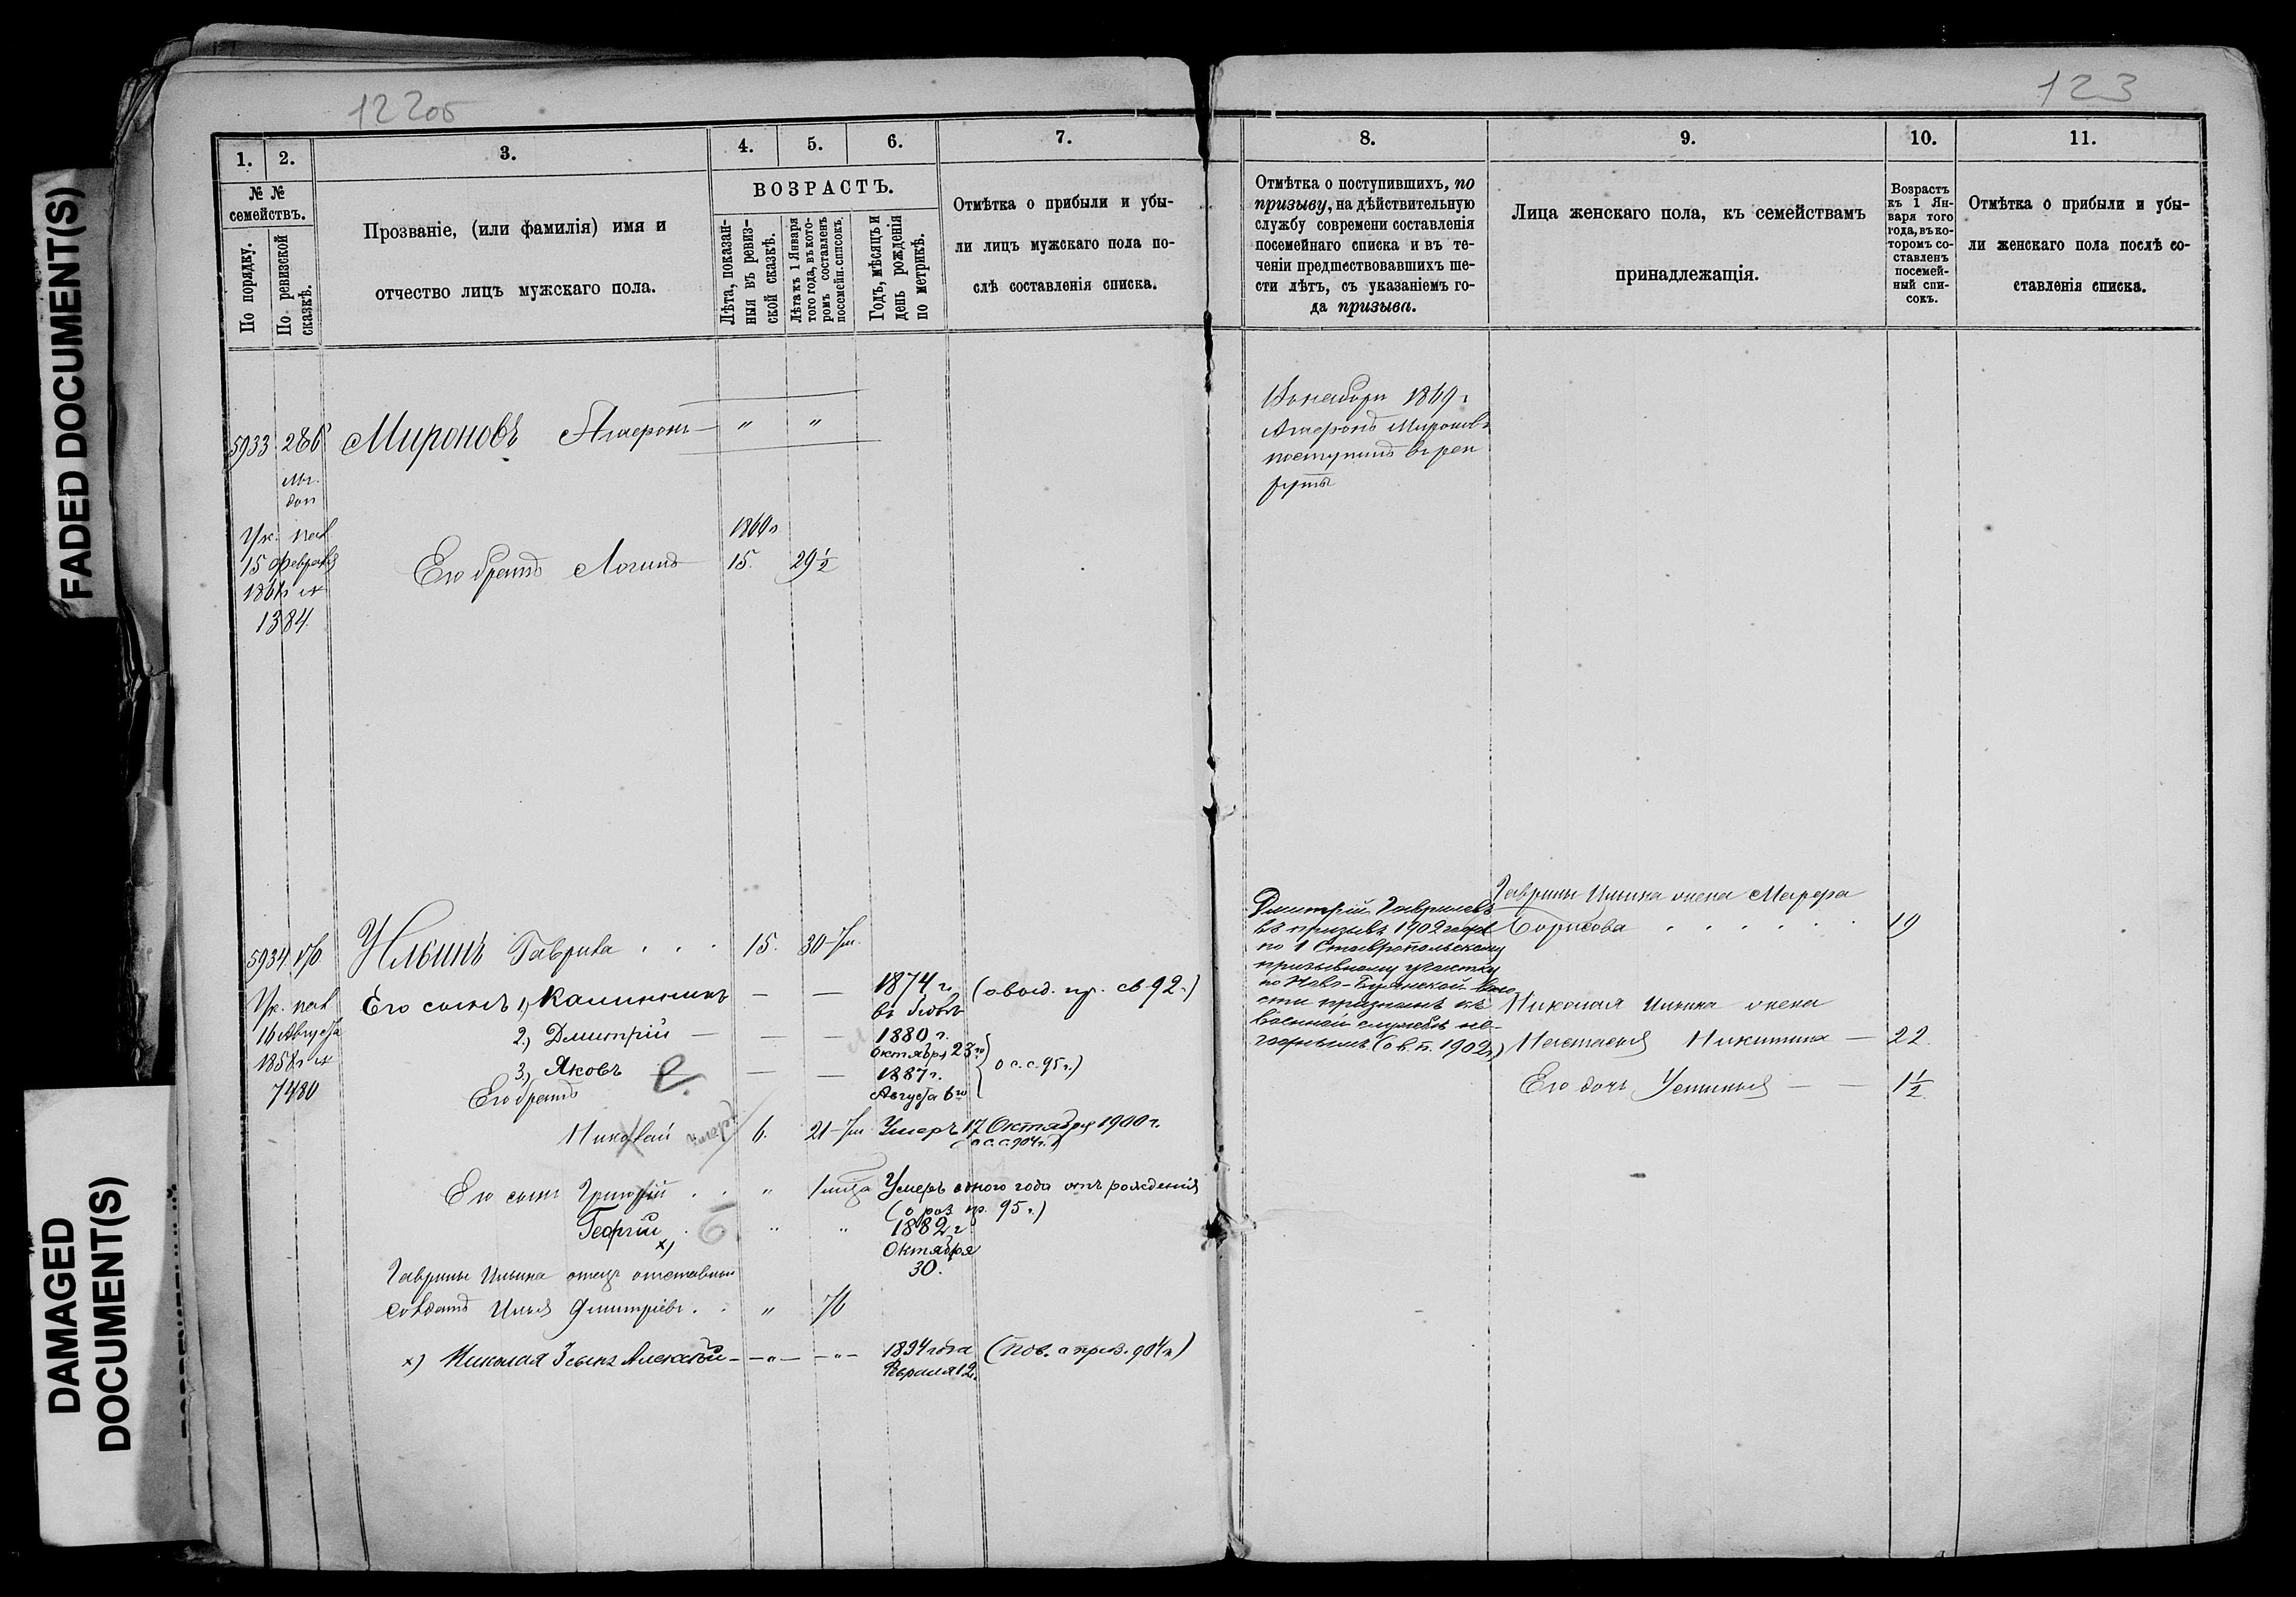 FADED DOCUMENT(S)
DAMAGED
DOCUMENT(S)
122об
123
1.
2.
3.
4.
5.
6.
7.
8.
9.
10.
11.
№ №
семействъ.
По порядку.
По ревизской
сказкѣ.
Прозваніе, (или фамилія) имя и
отчество лицъ мужскаго пола.
ВОЗРАСТЪ.
Лѣта, показан-
ныя въ ревиз-
ской сказкѣ.
Лѣта къ 1 Января
того года, въ кото-
ромъ составленъ
посемейн. списокъ.
Годъ, мѣсяцъ и
день рожденія
по метрикѣ.
Отмѣтка о прибыли и убы-
ли лицъ мужскаго пола по-
слѣ составленія списка.
Отмѣтка о поступившихъ, по
призыву, на дѣйствительную
службу современи составленія
посемейнаго списка и въ те-
ченіи предшествовавшихъ ше-
сти лѣтъ, съ указаніемъ го-
да призыва.
Лица женскаго пола, къ семействамъ
принадлежащія.
Возрастъ
къ 1 Ян-
варя того
года, въ ко-
торомъ со-
ставленъ
посемей-
ный спи-
сокъ.
Отмѣтка о прибыли и убы-
ли женскаго пола послѣ со-
ставленія списка.
5933 286 Мироновъ — " "
1869 г
Миронов
поступилъ в рек
руты
Ук.
15 Февраля
1384.
Его братъ Логинъ 15. 29½
5934 Ильинъ Гаврила . . . 15. 30
Ук.
16 Августа
1858 г
7480
Его сынъ 1, Калинникъ — — 1874 г. ( пр. св 92.)
2, Дмитрій — — — 1880 г.
Октября 23го
3, Яковъ — — — 1887 г.
Августа 6го
(о с.с. 95 г.)
Его братъ
Николай умеръ 6. 21 Умеръ 17 Октября 1900 г.
(о с.с. 904 г.)
Его сынъ Григорій . . " Умеръ одного года отъ рожденія
(о пр. 95 г.)
Георгій х) " " 1882 г
Октября
30.
Гаврилы Ильина отецъ отставной
солдатъ Илья Дмитріевъ . . " 76
х) Николая 3 сынъ Алексѣй — " — — " — 1894 года
Февраля 12. (Пов. о 904 г.)
Дмитрій Гавриловъ
въ призывъ 1902 года
по 1 Ставропольскому
призывному участку
по Ново-Буянской воло
сти признанъ къ
военной службѣ не-
годнымъ. (о в. п. 1902 г)
Гаврилы Ильина жена Марфа
Борисова . . . . . . 19
Николая Ильина жена
Настасья Никитина — 22
Его дочь Устинья — — 1½